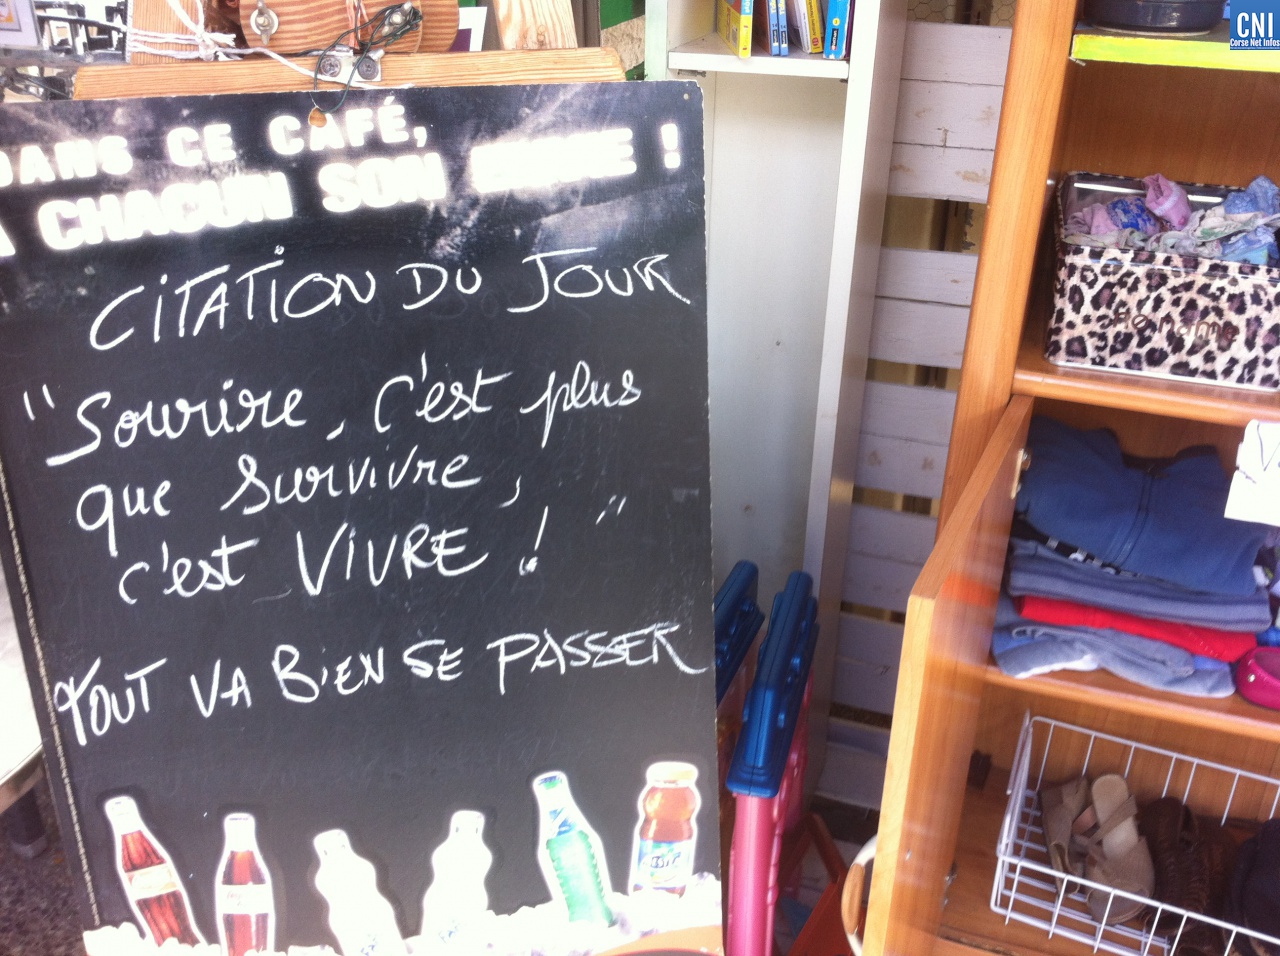 CNI
Corse Net Infos
DANS CE CAFÉ,
À CHACUN SON !
CITATION DU JOUR
"Sourire, c'est plus
que Survivre,
c'est VIVRE ! "
TOUT VA BIEN SE PASSER